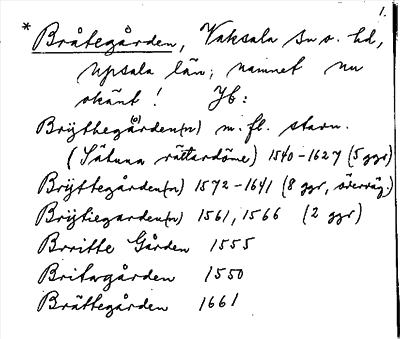 1.
* Bråtegården, Vaksala sn o. hd,
Upsala län; namnet nu
okänt! Jb:
Brijthegården(n) m. fl. stavn.
(Sätuna rättardöme) 1540-1627 (5 ggr)
Brijttegården(n) 1572-1641 (8 ggr, överväg.)
Brijtiegarden(n) 1561, 1566 (2 ggr)
Brritte Gården 1555
Britergården 1550
Brättegården 1661